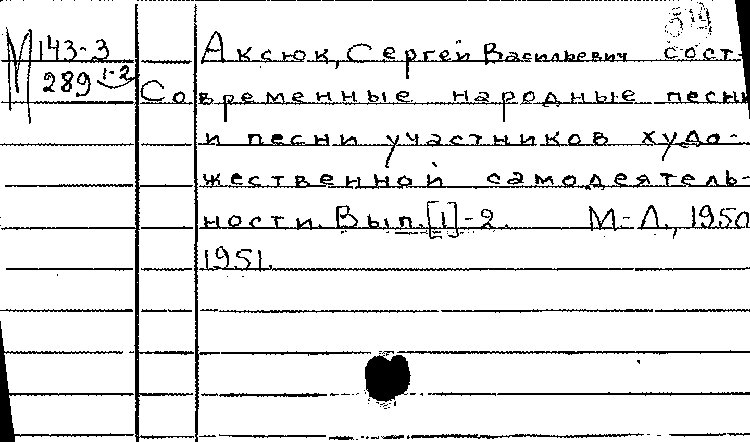 М 143-3 Аксюк, Сергей Васильевич сост.
289 1-2 Современные народные песни
и песни участников худо-
жественной самодеятель-
ности. Вып. [1]-2. М.-Л., 1950
1951.